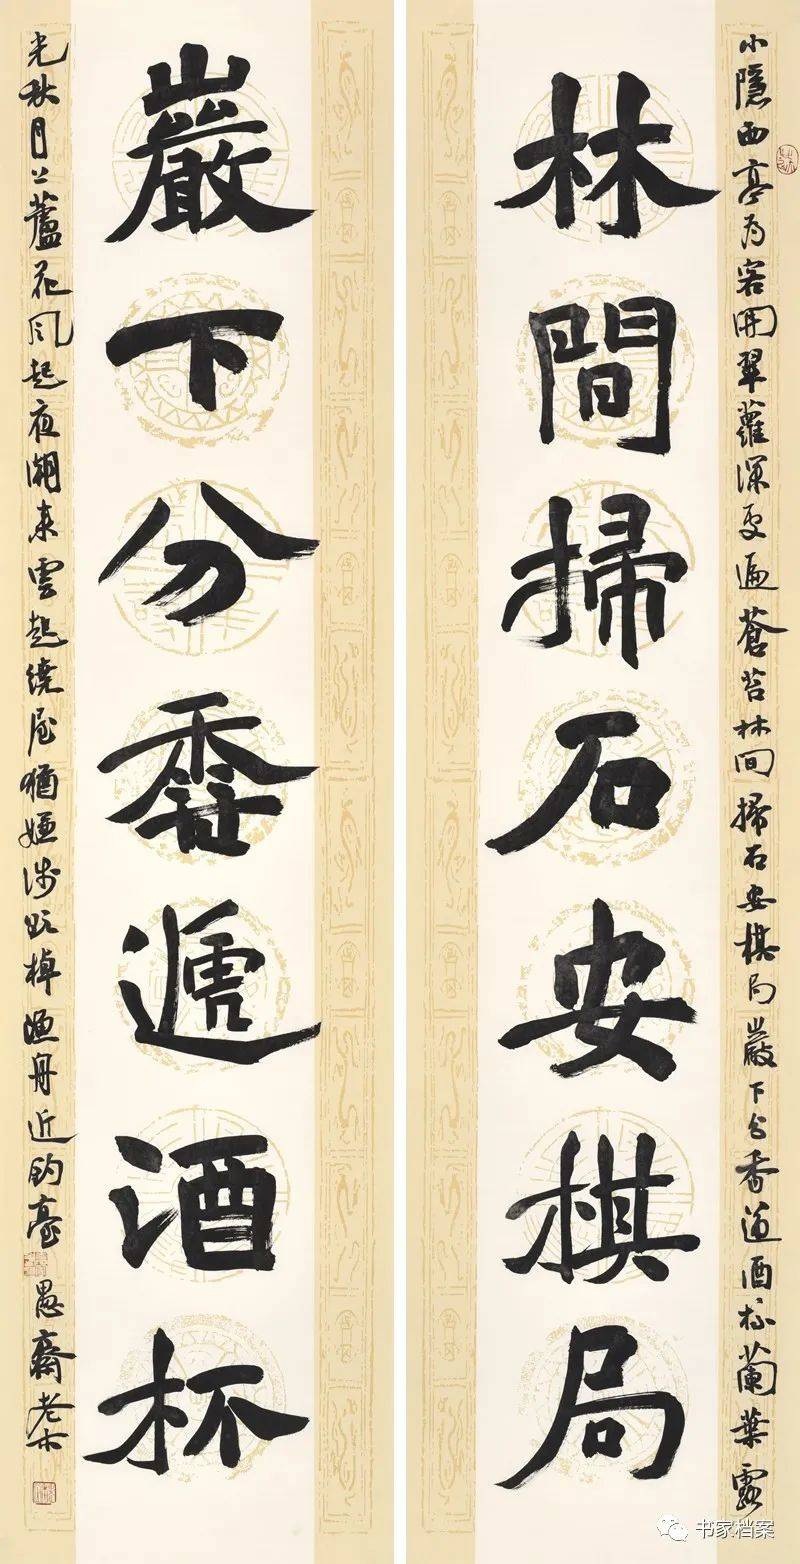 小隱西亭為客開翠蘿深處遍蒼苔林間掃石安棋局巖下分香遞酒杯蘭葉露
林間掃石安棋局
巖下分香遞酒杯
光秋月上蘆花風起夜潮來雲起繞屋猶嫌淺欲棹漁舟近釣臺 愚齋老
书家档案